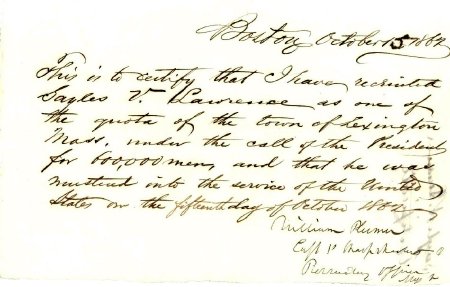 Boston October 15 1862
This is to certify that I have recruited
Sayles V. Lawrence as one of
the quota of the town of Lexington
Mass, under the call of the President
for 600,000 men, and that he was
mustered into the service of the United
States on the fifteenth day of October 1862
William Plumer
Capt 1st Sharpshooters
Recruiting Officer